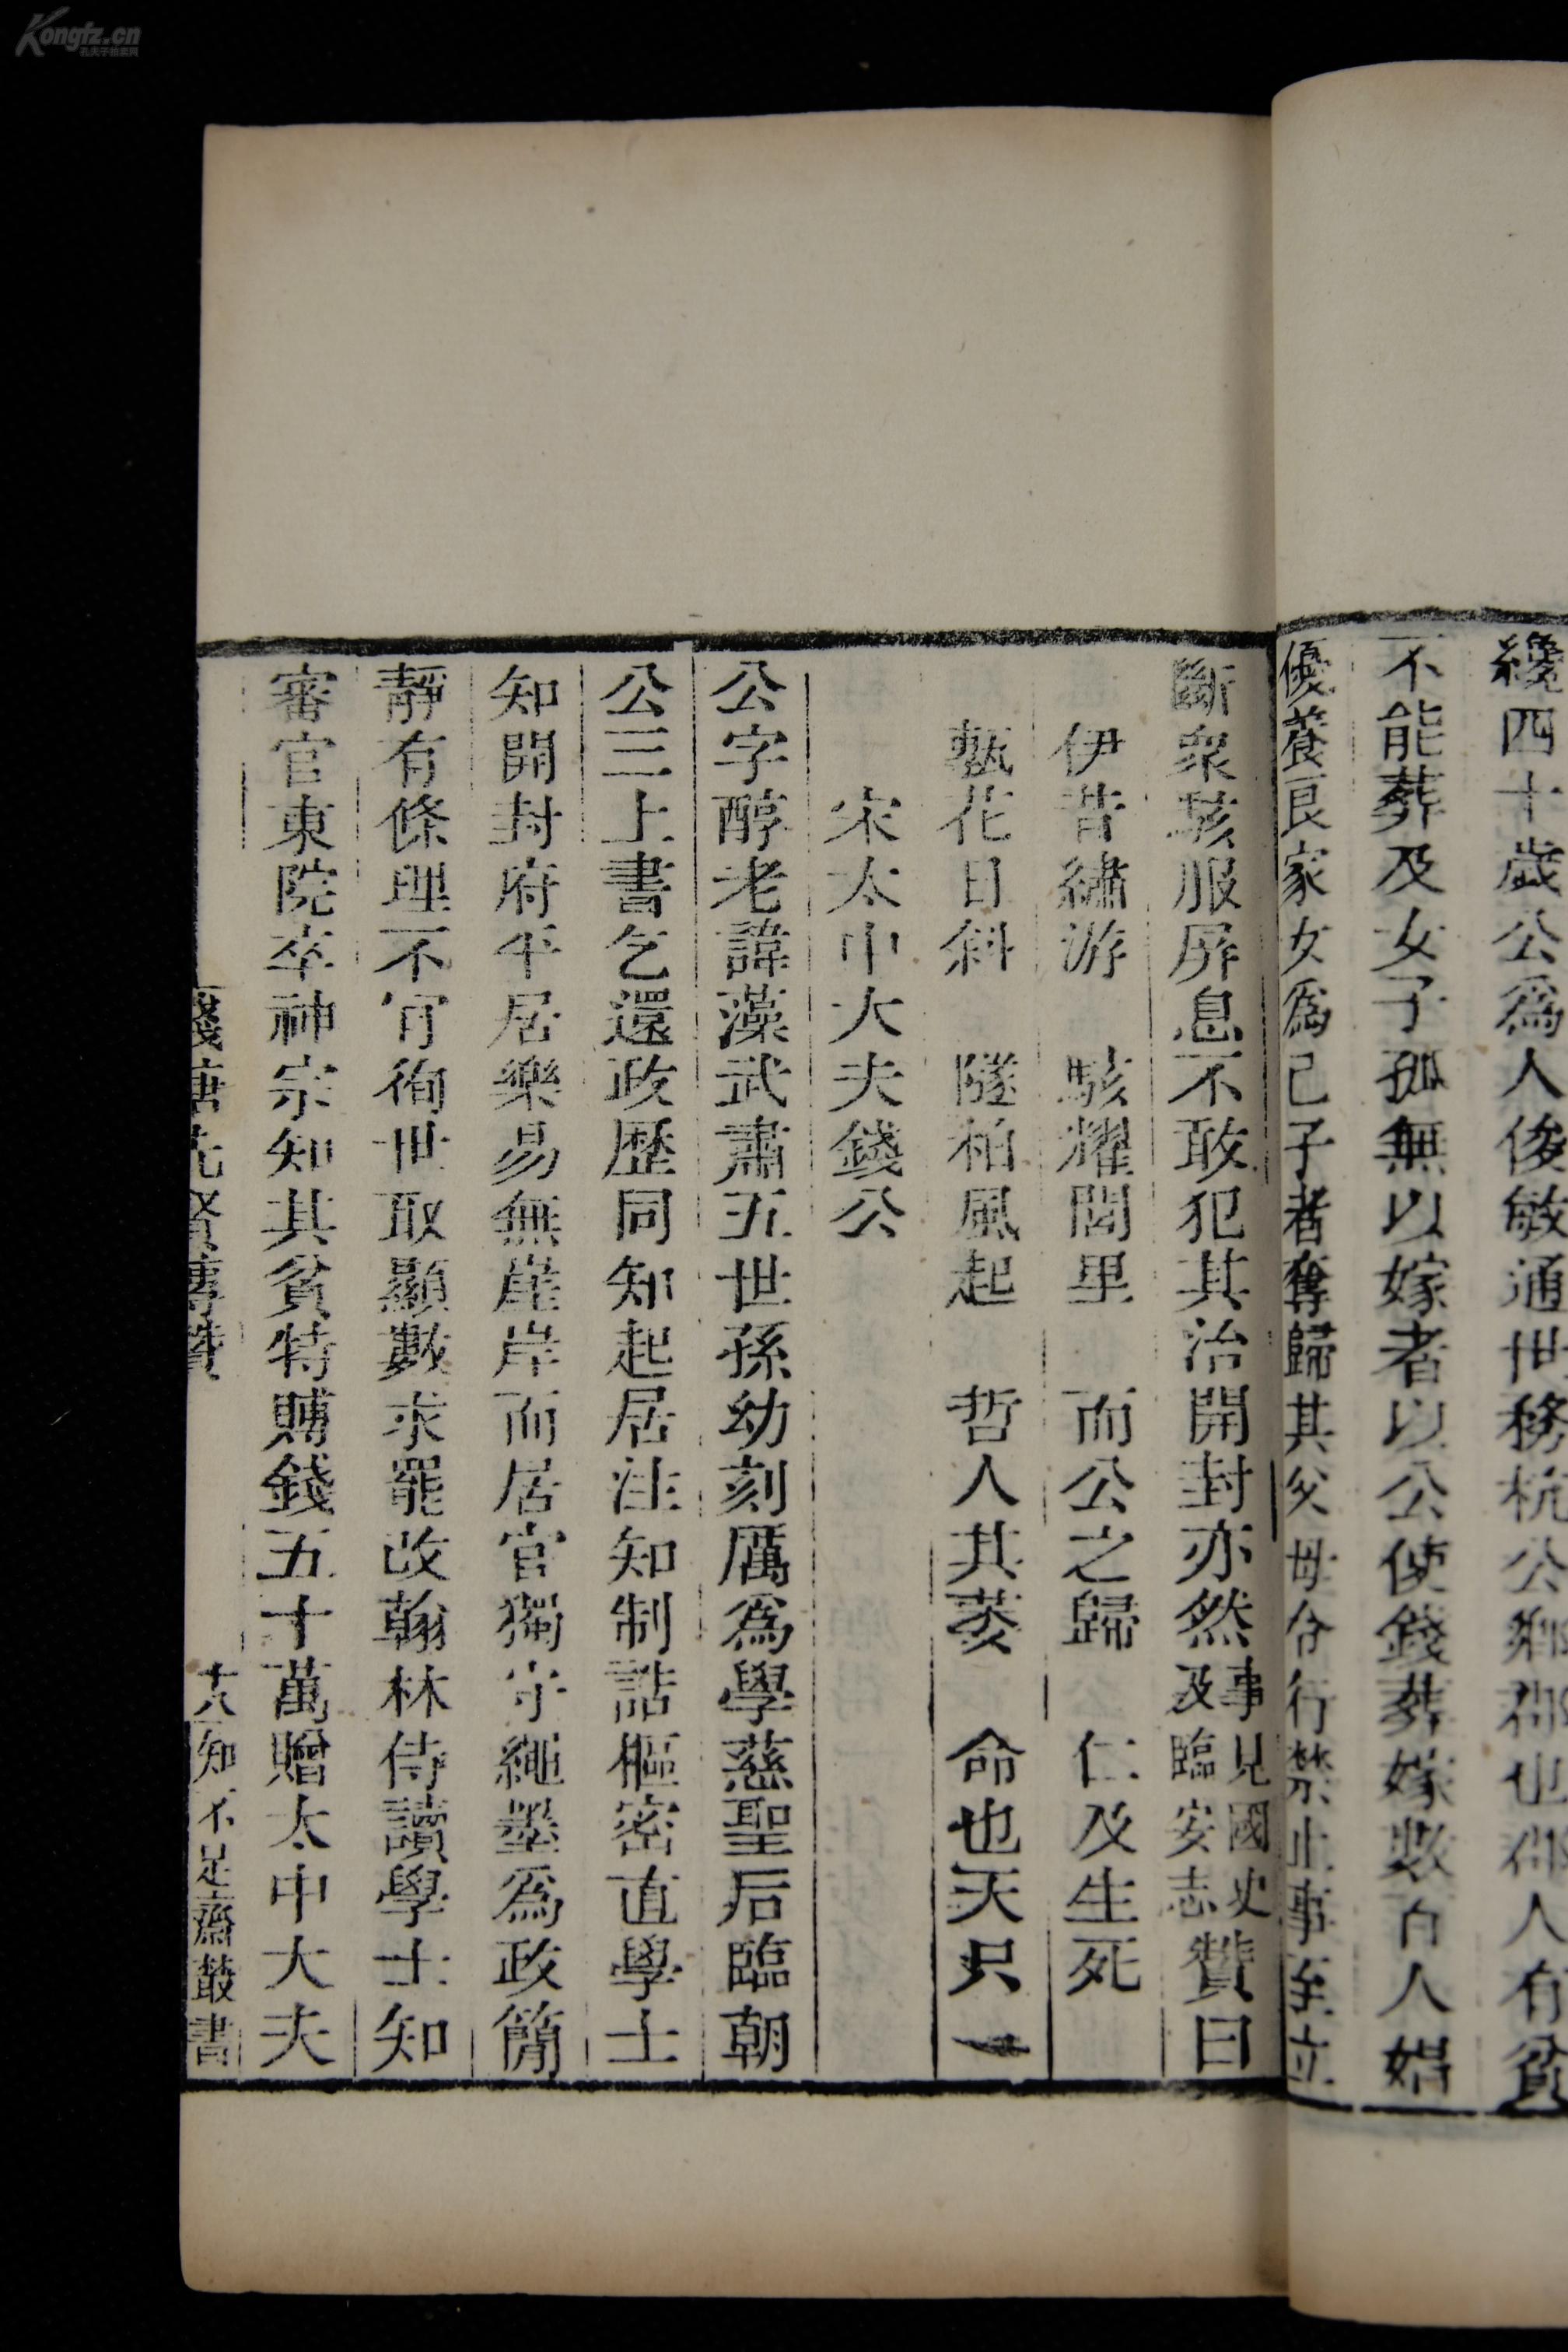 纔四十歲公爲人俊敏通世務杭公鄉郡也郡人有貧
不能葬及女子孤無以嫁者以公使錢葬嫁數百人娼
優養良家女爲己子者奪歸其父母令行禁止事至立
斷衆駭服屏息不敢犯其治開封亦然事見國史及臨安志贊曰
伊昔繡游 駭耀閭里 而公之歸 仁及生死
蓺花日斜 隧柏風起 哲人其萎 命也天只
宋太中大夫錢公
公字醇老諱藻武肅五世孫幼刻厲爲學慈聖后臨朝
公三上書乞還政歷同知起居注知制誥樞密直學士
知開封府平居樂易無崖岸而居官獨守繩墨爲政簡
靜有條理不肎徇世取顯數求罷改翰林侍讀學士知
審官東院卒神宗知其貧特賻錢五十萬贈太中大夫
錢唐先賢傳贊 十八 知不足齋叢書
Kongfz.cn